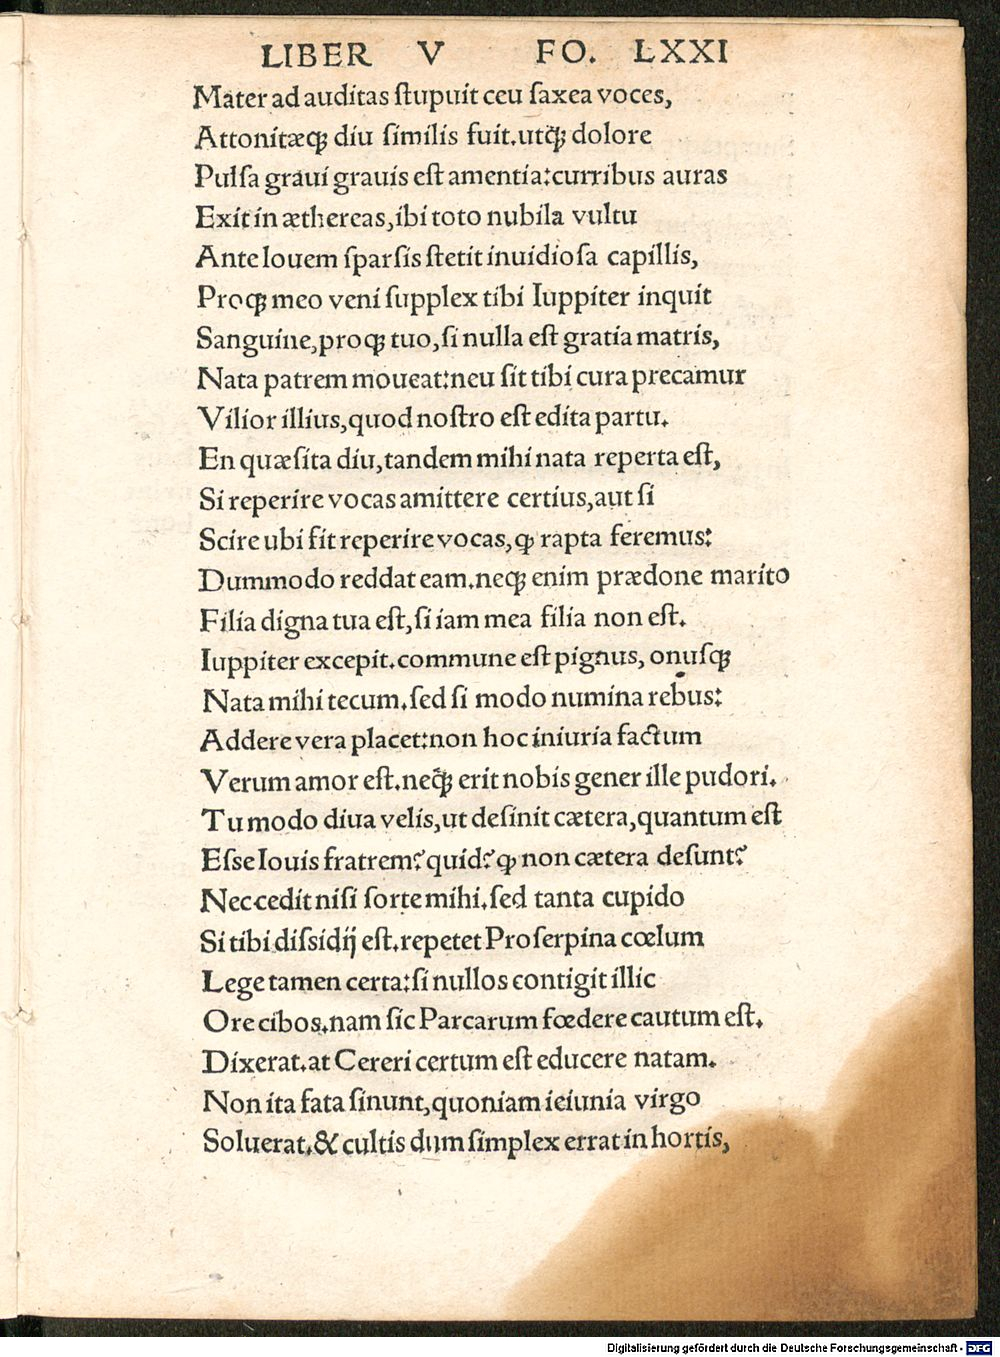 LIBER V FO. LXXI
Mater ad auditas ſtupuit ceu ſaxea voces,
Attonitæqꝫ diu ſimilis fuit.utqꝫ̃ dolore
Pulſa graui grauis eſt amentia:curribus auras
Exit in æthereas,ibi toto nubila vultu
Ante Iouem ſparſis ſtetit inuidioſa capillis,
Proqꝫ meo veni ſupplex tibi Iuppiter inquit
Sanguine,proqꝫ tuo,ſi nulla eſt gratia matris,
Nata patrem moueat:neu ſit tibi cura precamur
Vilior illius,quod noſtro eſt edita partu.
En quæſita diu,tandem mihi nata reperta eſt,
Si reperire vocas amittere certius,aut ſi
Scire ubi ſit reperire vocas,ꝙ rapta feremus:
Dummodo reddat eam.neqꝫ enim prædone marito
Filia digna tua eſt,ſi iam mea filia non eſt.
Iuppiter excepit.commune eſt pignus, onuſqꝫ
Nata mihi tecum.ſed ſi modo numina rebus:
Addere vera placet:non hoc iniuria factum
Verum amor eſt.neqꝫ̃ erit nobis gener ille pudori.
Tu modo diua velis,ut deſinit cætera,quantum eſt
Eſſe Iouis fratrem?quid?ꝙ non cætera deſunt?
Nec cedit niſi ſorte mihi.ſed tanta cupido
Si tibi diſsidij eſt.repetet Proſerpina cœlum
Lege tamen certa:ſi nullos contigit illic
Ore cibos.nam ſic Parcarum fœdere cautum eſt.
Dixerat.at Cereri certum eſt educere natam.
Non ita fata ſinunt,quoniam ieiunia virgo
Soluerat.& cultis dum ſimplex errat in hortis,
Digitalisierung gefördert durch die Deutsche Forschungsgemeinschaft - DFG